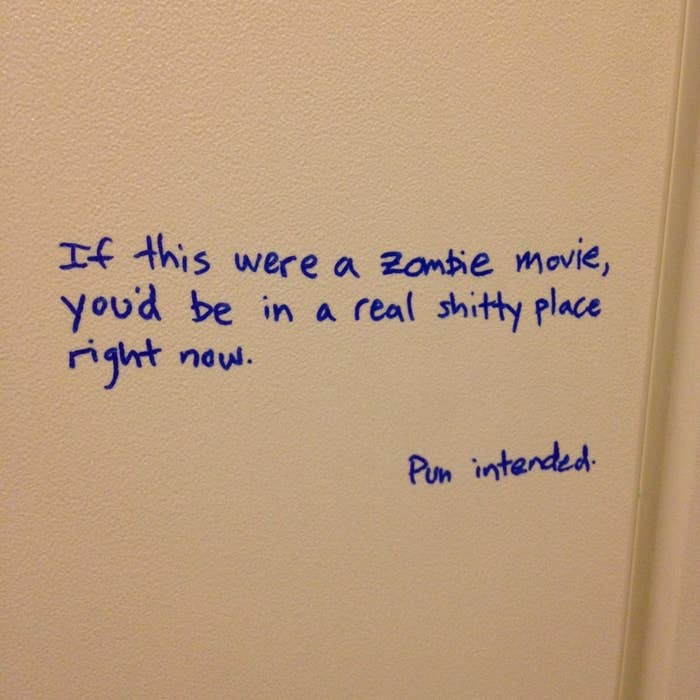 If this were a zombie movie,
you'd be in a real shitty place
right now.
Pun intended.